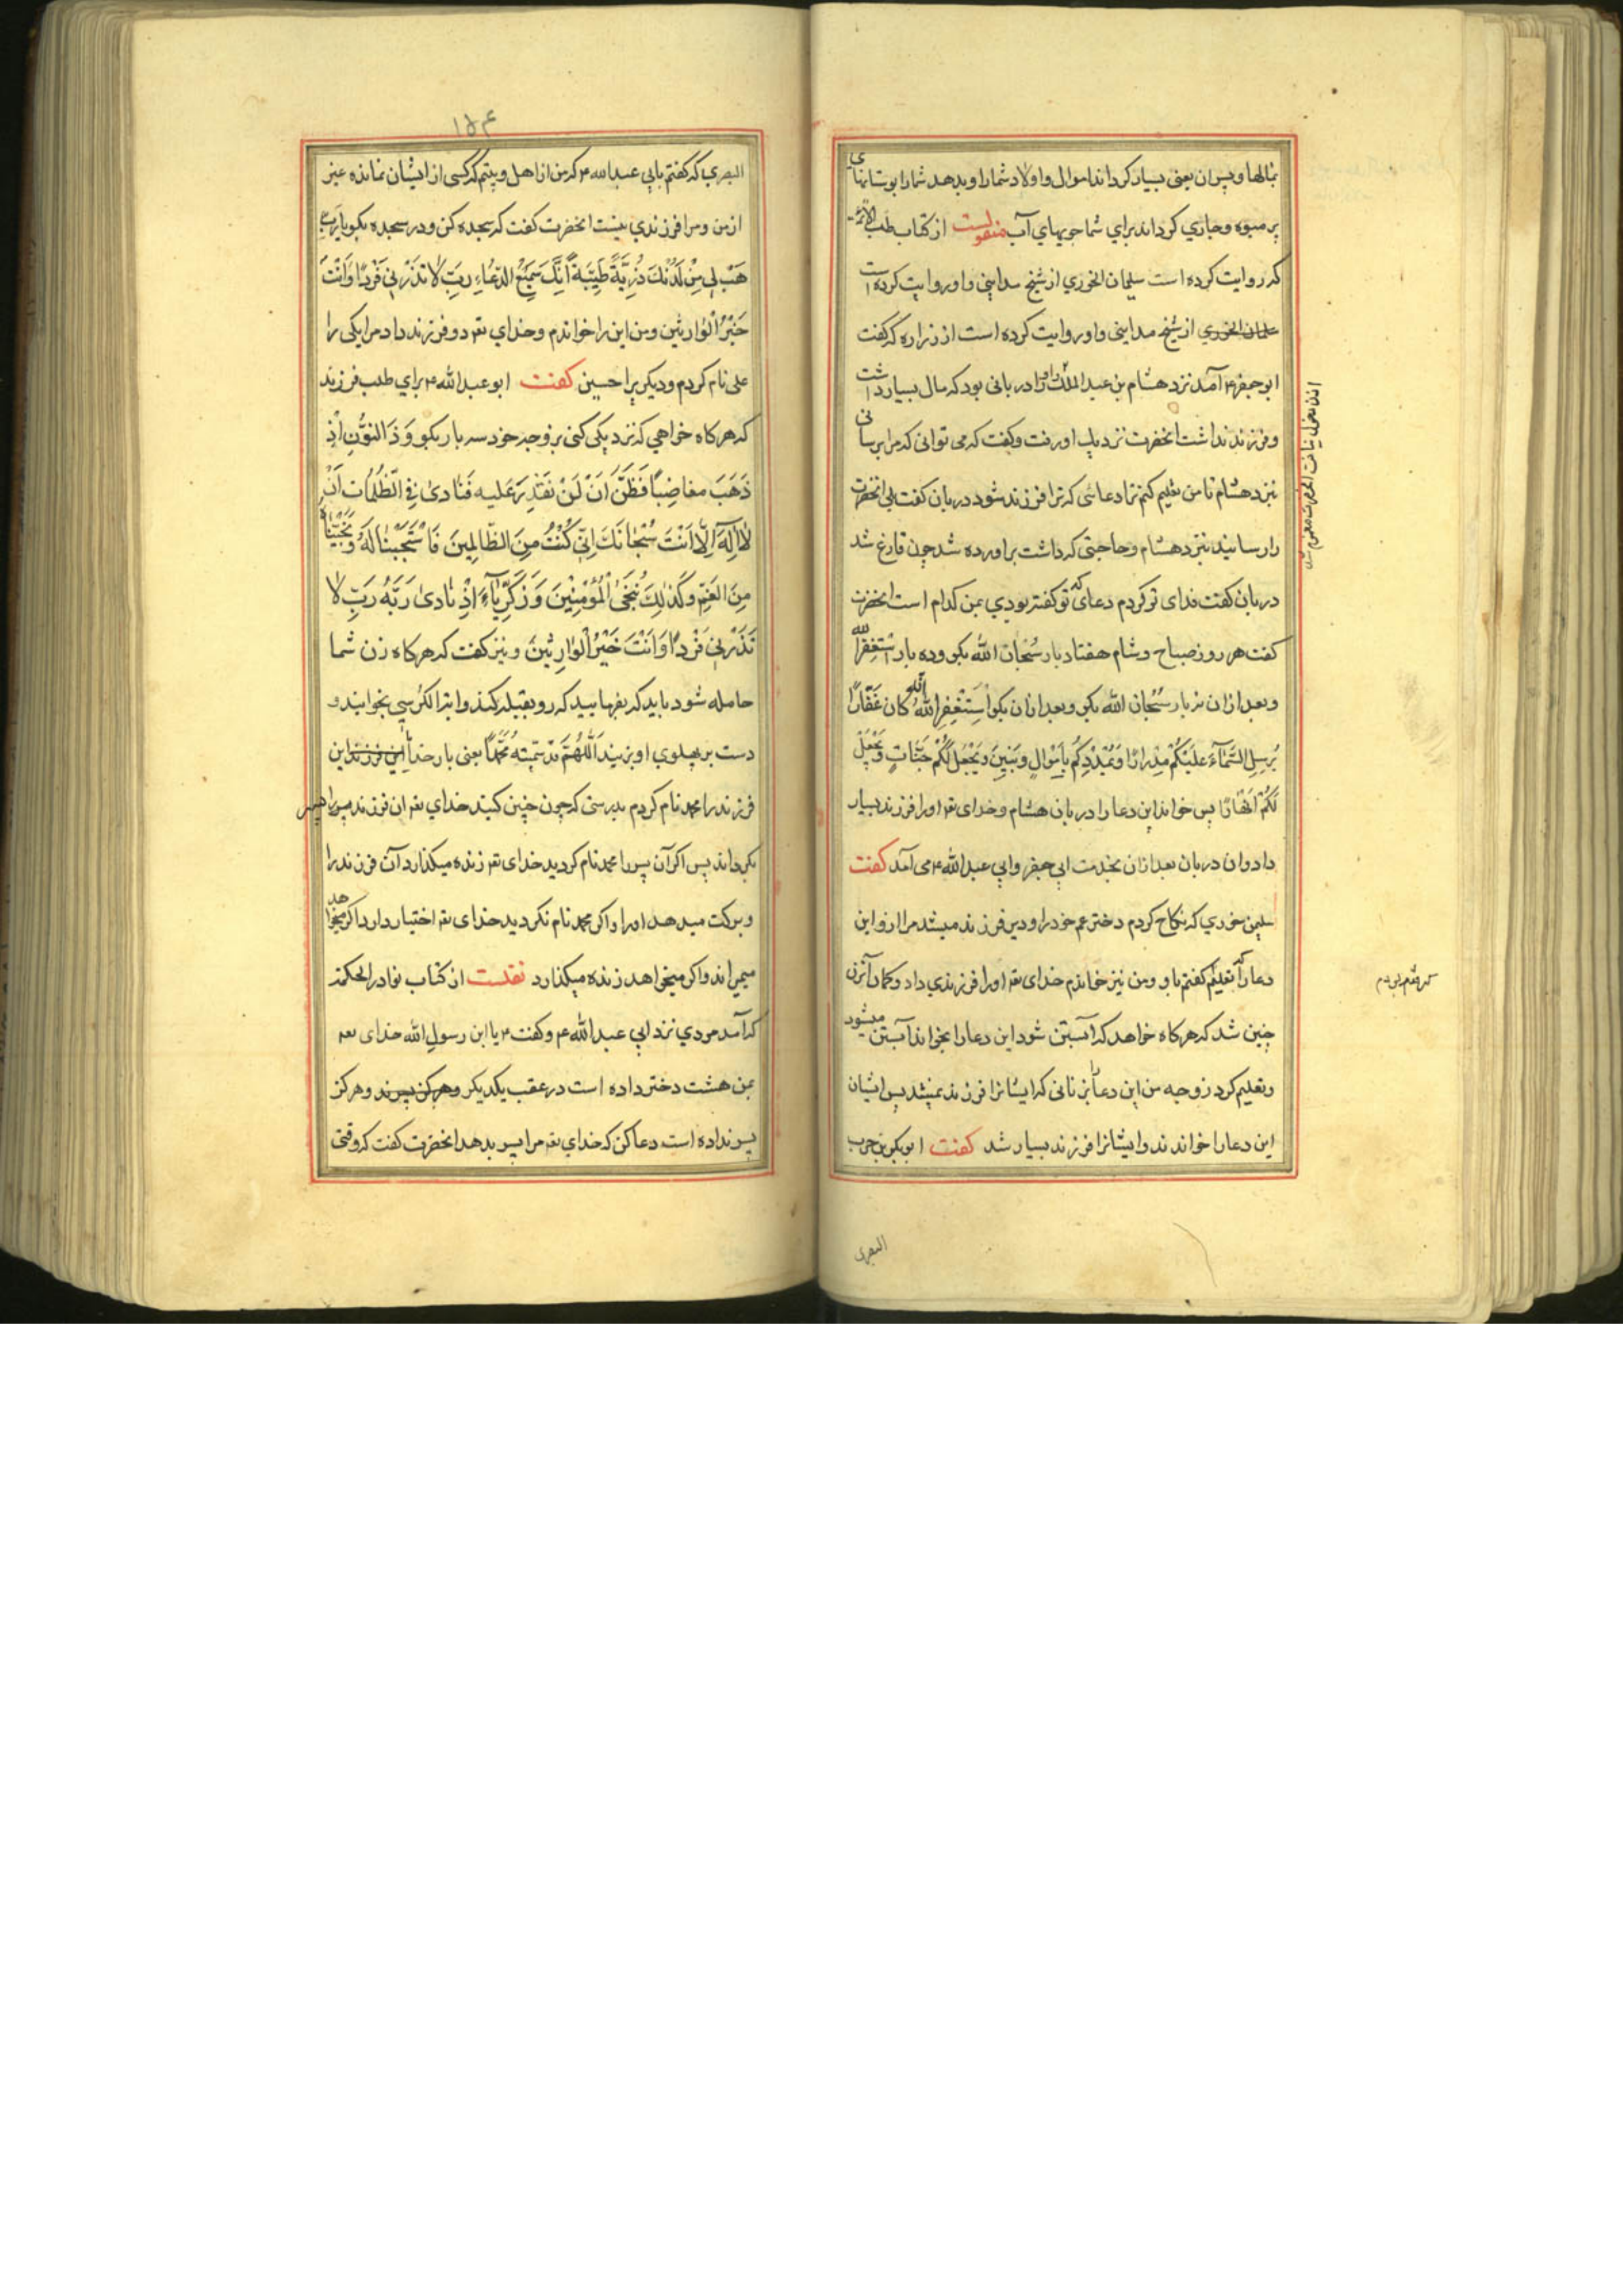 بمالها و پسران یعنی بسیار کرداند اموال و اولاد شما را و بدهد شما را بوستانهای
پر میوه و جاری کرداند برای شما جویهای آب منقولست از کتاب طب الائمه
که روایت کرده است سلیمان الخوری از شیخ مداینی و او روایت کرده است
از شیخ مداینی و او روایت کرده است از زراره که کفت
ابو جعفر ۴ آمد نزد هشام بن عبد الملک و او را دربانی بود که مال بسیار داشت
و فرزند نداشت انحضرت نزدیک او رفت و کفت که می توانی که مرا برسانی
بنزد هشام تا من تعلیم کنم ترا دعائی که ترا فرزند شود دربان کفت بلی انحضرت
را رسانید بنزد هشام و حاجتی که داشت براورده شد چون فارغ شد
دربان کفت فدای تو کردم دعای که تو کفته بودی بمن کدام است انحضرت
کفت هر روز صباح و شام هفتاد بار سُبْحانَ الله بکو و ده بار اَسْتَغْفِرُ الله
و بعد ازان نه بار سُبْحانَ الله بکو و بعد ازان بکو اَسْتَغْفِرُ اللهَ اِنَّهُ کانَ غَفّارًا
یُرْسِلِ السَّمآءَ عَلَیْکُمْ مِدْرارًا وَیُمْدِدْکُمْ بِاَمْوالٍ وَبَنینَ وَیَجْعَلْ لَکُمْ جَنّاتٍ وَیَجْعَلْ
لَکُمْ اَنْهارًا پس خواند این دعا را دربان هشام و خدای تع او را فرزند بسیار
داد و ان دربان بعد ازان بخدمت ابی جعفر و ابی عبد الله ۴ می آمد کفت
سلیمن خوری که نکاح کردم دختر عم خود را و دیر فرزند میشد مرا ازو این
دعا را که تعلیم کفتم باو و من نیز خاندم خدای تع او را فرزندی داد و کمان آنزن
چنین شد که هرکاه خواهد که آبستن شود این دعا را بخواند آبستن میشود
و تعلیم کرد زوجه من این دعا را بزنانی که ایشانرا فرزند نمیشد پس ایشان
این دعا را خواندند و ایشانرا فرزند بسیار شد کفت ابو بکر بن حرب
البصری
۱۵۴
البصری که کفتم بابی عبد الله ۴ که من از اهل بیتم که کسی از ایشان نمانده غیر
از من و مرا فرزندی نیست انحضرت کفت که سجده کن و در سجده بکو یا رَبِّ
هَبْ لی مِنْ لَدُنْکَ ذُرِّیَّةً طَیِّبَةً اِنَّکَ سَمیعُ الدُّعاءِ رَبِّ لا تَذَرْنی فَرْدًا وَاَنْتَ
خَیْرُ الْوارِثینَ و من این را خواندم و خدای تع دو فرزند داد مرا یکی را
علی نام کردم و دیکریرا حسین کفت ابو عبد الله ۴ برای طلب فرزند
که هرکاه خواهی که نزدیکی کنی بزوجه خود سه بار بکو وَ ذَا النُّونِ اِذْ
ذَهَبَ مُغاضِبًا فَظَنَّ اَنْ لَنْ نَقْدِرَ عَلیهِ فَنادیٰ فِی الظُّلُماتِ اَنْ
لا اِلٰهَ اِلّا اَنْتَ سُبْحانَکَ اِنّی کُنْتُ مِنَ الظّالِمینَ فَاسْتَجَبْنا لَهُ وَنَجَّیْناهُ
مِنَ الغَمِّ وَکَذٰلِکَ نُنْجِی الْمُؤْمِنینَ وَزَکَرِیّآءَ اِذْ نادیٰ رَبَّهُ رَبِّ لا
تَذَرْنی فَرْدًا وَاَنْتَ خَیْرُ الْوارِثینَ و نیز کفت که هرکاه زن شما
حامله شود باید که بفرمایید که رو بقبله کند و ایة الکرسی بخوانید و
دست بر پهلوی او بزنید اَللّٰهُمَّ قَدْ سَمَّیْتُهُ مُحَمَّدًا یعنی بار خدایا این فرزند این
فرزند را محمد نام کردم بدرستی که چون چنین کنید خدای تع ان فرزند را پسر
بکرداند پس اکر آن پسر را محمد نام کردید خدای تع زنده میکذارد آن فرزند را
و برکت میدهد او را و اکر محمد نام نکردید خدای تع اختیار دارد اکر میخواهد
میمیراند و اکر میخواهد زنده میکذارد نقلست از کتاب نوادر الحکمة
که آمد مردی نزد ابی عبد الله ۴ و کفت ۴ یا ابن رسول الله خدای تع
بمن هشت دختر داده است در عقب یکدیکر و هرکز پسر ند و هرکز
پسر نداده است دعا کن که خدای تع مرا پسر بدهد انحضرت کفت که وقتی